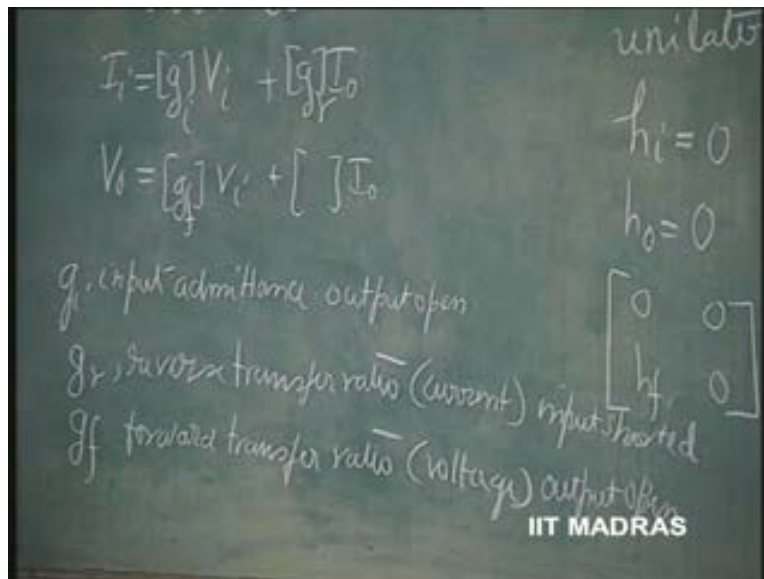 I_i = [g_i] V_i + [g_r] I_o
V_o = [g_f] V_i + [ ] I_o
g_i, input admittance output open
g_r, reverse transfer ratio (current) input shorted
g_f forward transfer ratio (voltage) output open
unilate
h_i = 0
h_o = 0
[ 0 0
h_f 0 ]
IIT MADRAS